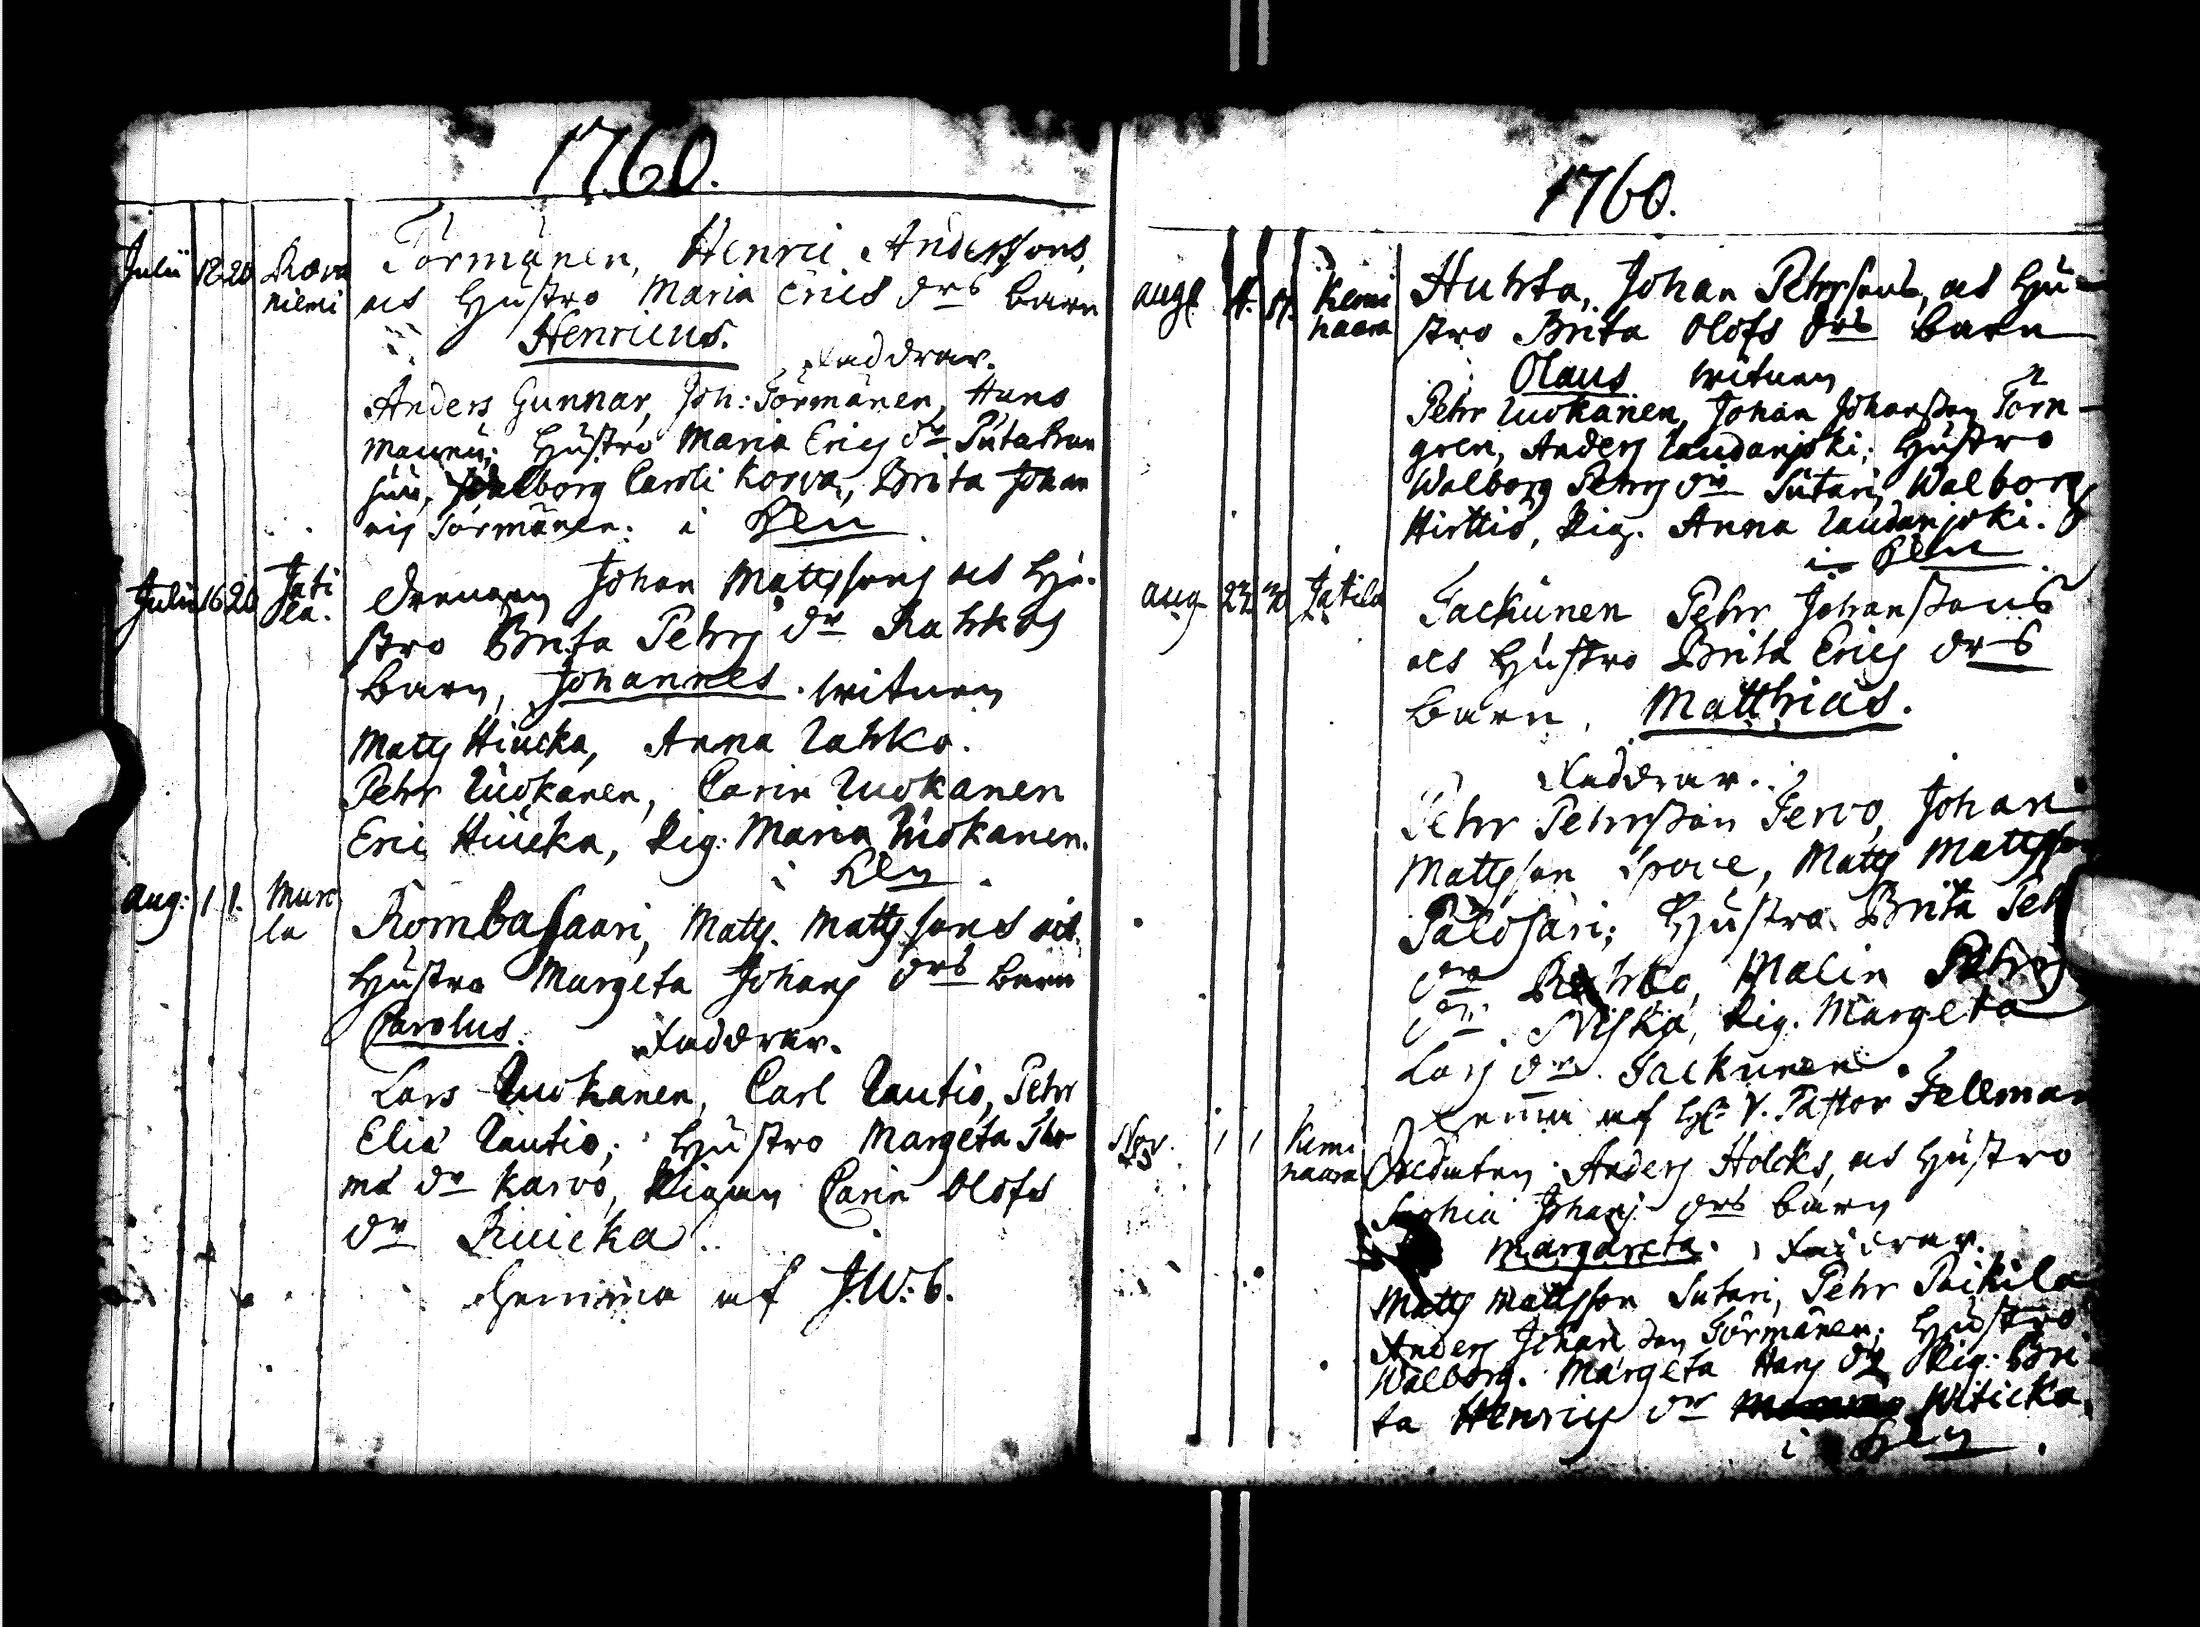 1760.
Julii 12 20 Rova
niemi
Törmänen, Henric Anderssons,
Hustro Maria Erics drs barn
Henricus.
Faddrar.
Anders Gunnar, Joh: Törmänen, Hans
Hustro Maria Erics dr
Walborg Caroli Korva, Brita Johan
nis Törmänen. i
Julii 16 20 Jati
la.
Drengen Johan Mattssons Hu-
stro Brita Pehrs dr Rahkos
barn, Johannes. witnen
Matts Hiucka, Anna
Pehr Luokanen, Carin Luokanen
Eric Hiucka, Pig: Maria Luokanen.
i
Aug: 1 1. Muro
la
Rombasaari, Matts Mattssons
Hustro Margeta Johans drs barn
Carolus. Faddrar.
Lars Luokanen, Carl Lautio, Pehr
Elia Lautio; Hustro Margeta Tho
mæ dr Karvo, Pigan Carin Olofs
dr
Hemma af J.W:b.
1760.
Aug. Kemi
haara
Huhta, Johan Pehrssons, Hu-
stro Brita Olofs drs barn
Olaus witnen
Pehr Luokanen, Johan Johansson Törn-
gren, Anders Laudanjoki; Hustro
Walborg Pehrs dr Sutari, Walborg
Hirttiö, Pig. Anna Laudanjoki.
i
Aug. Jatila
Jackunen Pehr Johanssons
Hustro Brita Erics drs
barn, Matthias.
Faddrar.
Pehr Pehrsson Jervo, Johan
Mattsson Matts Mattsson
Palosari; Hustro Brita Peh
dr Malin Pehrs
dr Niska, Pig. Margeta
Lars dr Jackunen.
Hemma af V. Pastor Fellman
Nov. 1 1 Kemi
haara
Soldaten Anders Holcks, Hustro
Sophia Johans drs barn
Margareta. Faddrar.
Matts Mattsson Sutari, Pehr Poikila
Anders Johansson Törmänen; Hustro
Walborg. Margeta Hans dr Pig: Bri
ta Henrics dr Witicka.
i